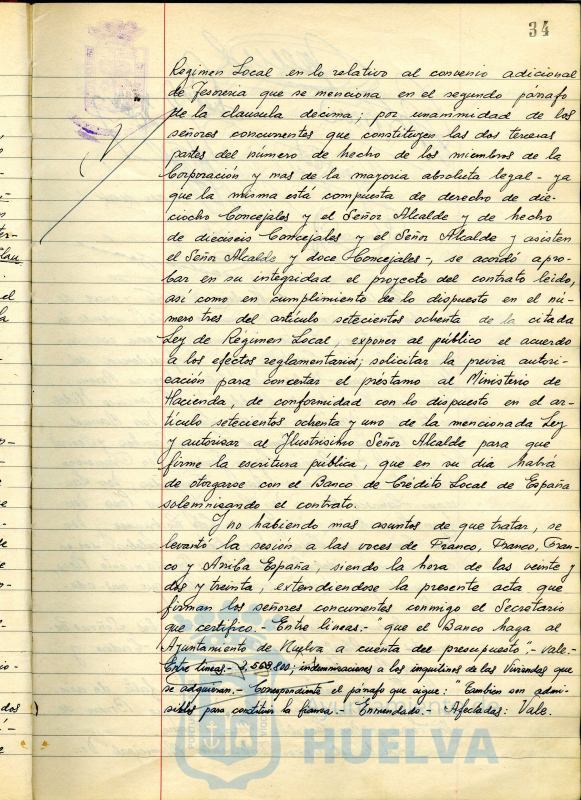 34
Regimen Local en lo relativo al convenio adicional
de Tesoreria que se menciona en el segundo párrafo
de la clausula decima; por unanimidad de los
señores concurrentes que constituyen las dos terceras
partes del número de hecho de los miembros de la
Corporación y mas de la mayoria absoluta legal - ya
que la misma está compuesta de derecho de die-
ciocho Concejales y el Señor Alcalde y de hecho
de dieciseis Concejales y el Señor Alcalde y asisten
el Señor Alcalde y doce Concejales -, se acordó apro-
bar en su integridad el proyecto del contrato leido,
así como en cumplimiento de lo dispuesto en el nú-
mero tres del artículo setecientos ochenta de la citada
Ley de Régimen Local, exponer al público el acuerdo
a los efectos reglamentarios; solicitar la previa autori-
cación para concertar el préstamo al Ministerio de
Hacienda, de conformidad con lo dispuesto en el ar-
tículo setecientos ochenta y uno de la mencionada Ley
y autorisar al Ilustrisimo Señor Alcalde para que
firme la escritura pública, que en su dia habrá
de otorgarse con el Banco de Crédito Local de España
solemnisando el contrato.
Y no habiendo mas asuntos de que tratar, se
levantó la sesión a las voces de Franco, Franco, Fran-
co y Arriba España, siendo la hora de las veinte y
dos y treinta, extendiendose la presente acta que
firman los señores concurrentes conmigo el Secretario
que certifico.- Entre lineas.- "que el Banco haga al
Ayuntamiento de Huelva a cuenta del presupuesto".- Vale.-
Entre lineas.- 2,568,800; indemnizaciones a los inquilinos de las Viviendas que
se adquieran.- Correspondiente el párrafo que sigue: "Tambien son admi-
sibles para constituir la fianza.- Enmendado.- Afectadas: Vale.
HUELVA